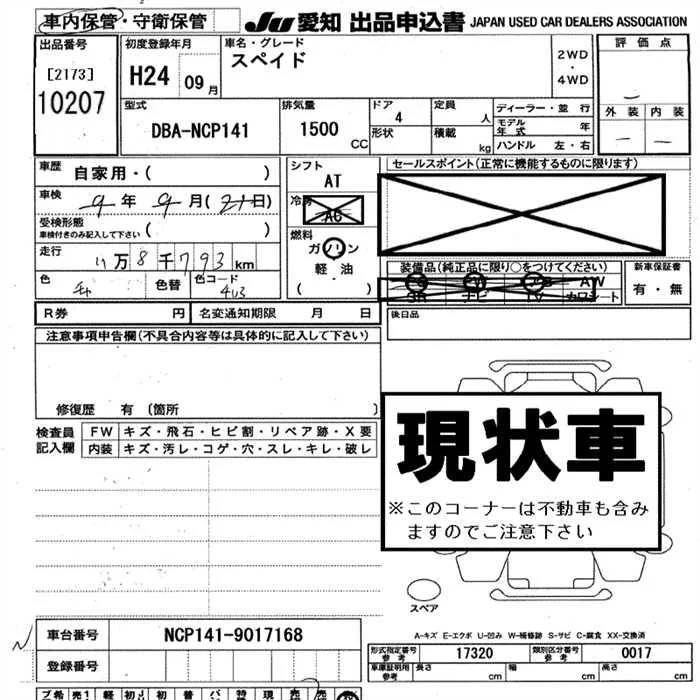 車内保管・守衛保管 JU 愛知 出品申込書 JAPAN USED CAR DEALERS ASSOCIATION
出品番号
[2173]
10207
初度登録年月
H24 09月
車名・グレード
スペイド
2WD
・
4WD
評価点
外装 内装
型式
DBA-NCP141
排気量
1500 CC
ドア
4
形状
定員 人
積載 kg
ディーラー・並行
モデル年式 年
ハンドル 左・右
車歴 自家用・( )
車検 9年9月(21日)
受検形態
車検付きのみ記入して下さい ( )
走行 11万8千793km
色 色替 色コード
4U3
シフト
AT
冷房
AC
燃料
ガソリン
軽・油
( )
セールスポイント(正常に機能するものに限ります)
装備品(純正品に限り○をつけてください)
SR ナビ TV カワシート
AW
新車保証書
有・無
R券 円 名変通知期限 月 日
後日品
注意事項申告欄(不具合内容等は具体的に記入して下さい)
修復歴 有 (箇所 )
検査員
記入欄
FW キズ・飛石・ヒビ割・リペア跡・X要
内装 キズ・汚レ・コゲ・穴・スレ・キレ・破レ
現状車
※このコーナーは不動車も含み
ますのでご注意下さい
スペア
A-キズ E-エクボ U-凹み W-補修跡 S-サビ C-腐食 XX-交換済
車台番号 NCP141-9017168
登録番号
形式指定番号
参考
17320
類別区分番号
参考
0017
車庫証明用
参考
長さ cm 幅 cm 高さ cm